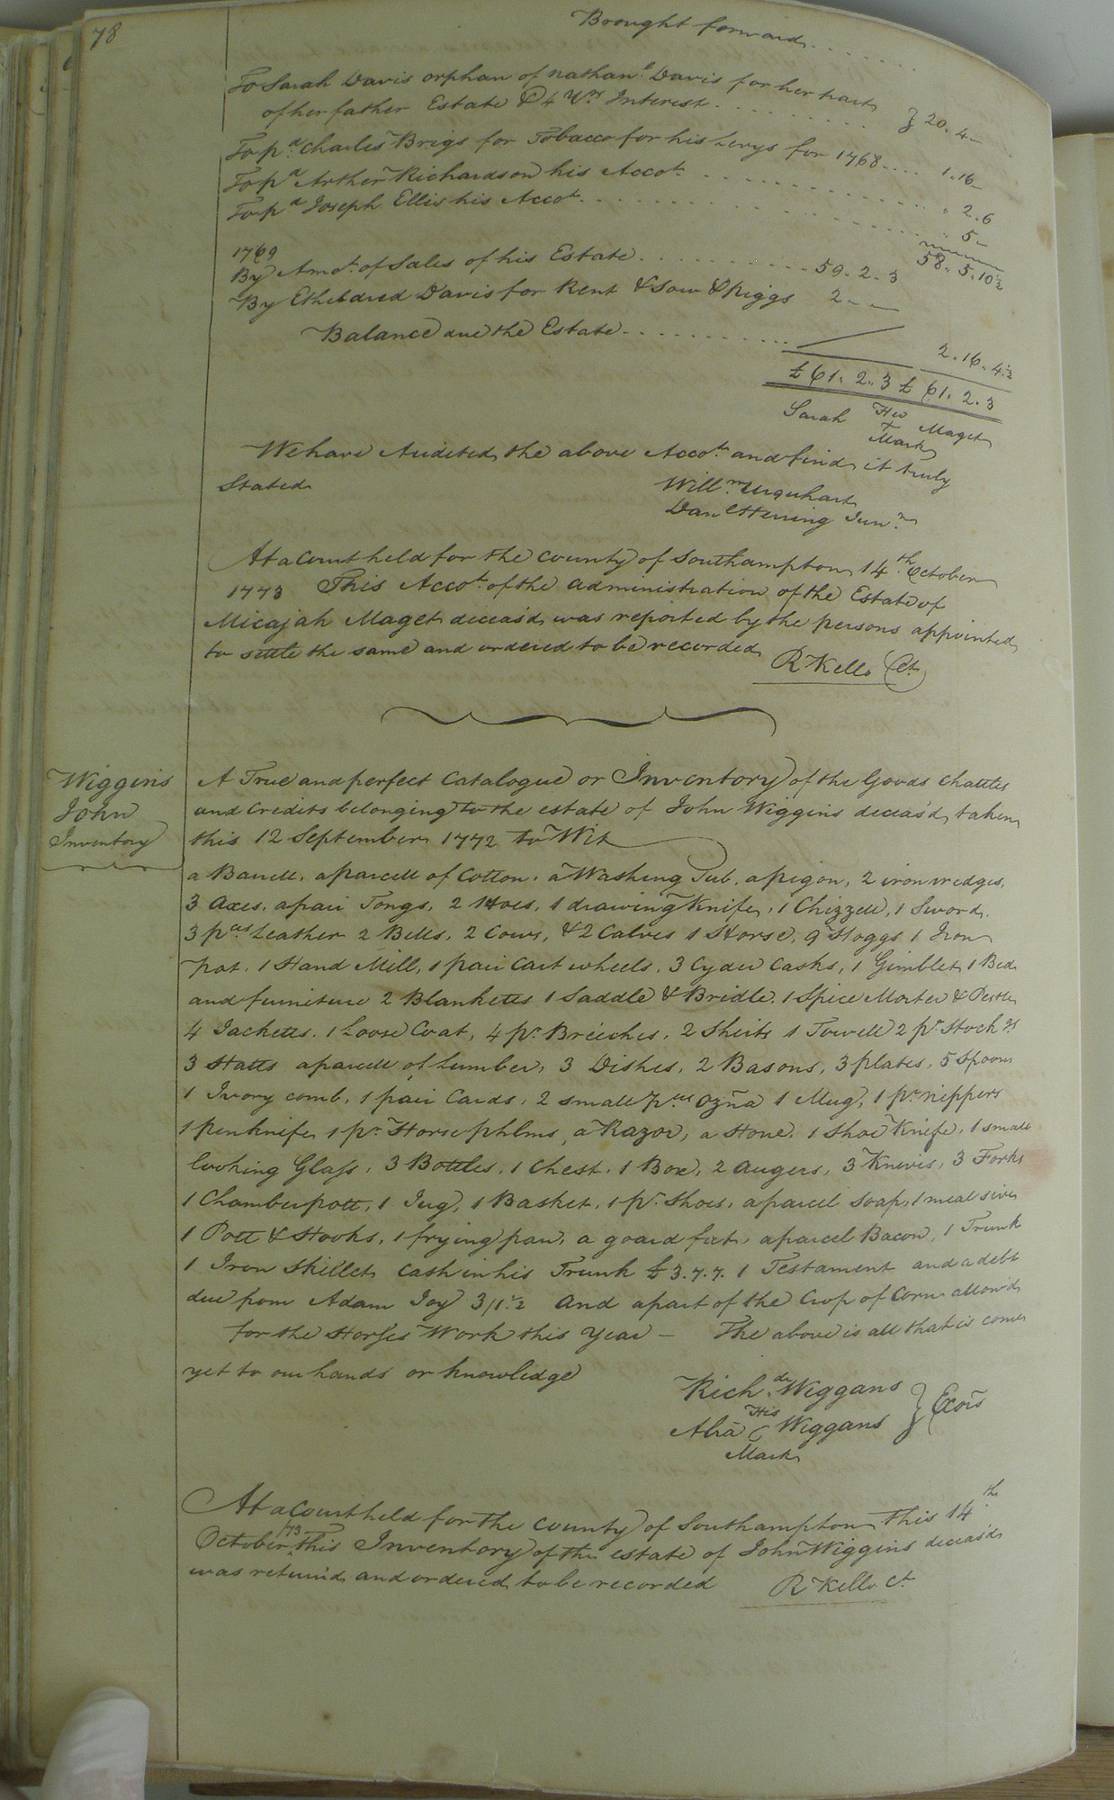 78
Brought forward
To Sarah Davis orphan of Nathan.l Davis for her part
of her father Estate & 4 Yrs Interest } 20. 4 -
To p.d Charles Brigs for Tobacco for his Levys for 1768 1. 16 -
To p.d Arther Richardson his Acco.t 2. 6
To p.d Joseph Ellis his Acco.t 5 -
58. 5. 10½
1769
By Amo.t of Sales of his Estate 59. 2. 3
By Etheldred Davis for Rent & Sow & Piggs 2 - -
Balance due the Estate 2. 16. 4½
£ 61. 2. 3 £ 61. 2. 3
Sarah Her Maget
Mark
We have Audited the above Acco.t and find it truly
Stated
Will.m Urquhart
Dan.l Herring Jun.r
At a Court held for the County of Southampton 14.th October
1773 This Acco.t of the administration of the Estate of
Micajah Maget deceas'd was reported by the persons appointed
to settle the same and ordered to be recorded
R Kello Ct
Wiggins
John
Inventory
A True and perfect Catalogue or Inventory of the Goods Chattles
and Credits belonging to the estate of John Wiggins deceas'd taken
this 12 September 1772 to Wit
a Barrell, a parcell of Cotton, a Washing Tub, a pigon, 2 iron wedges,
3 Axes, a pair Tongs, 2 Hoes, 1 drawing Knife, 1 Chizzell, 1 Sword,
3 p.ces Leather 2 Bells, 2 Cows, & 2 Calves 1 Horse, 9 Hoggs 1 Iron
pot, 1 Hand Mill, 1 pair Cart wheels, 3 Cyder Casks, 1 Gimblet 1 Bed
and furniture 2 Blanketts 1 Saddle & Bridle, 1 Spice Morter & Pestle
4 Jacketts, 1 Loose Coat, 4 p.r Breeches, 2 Shirts 1 Towell 2 p.r Stock.gs
3 Hatts a parcell of Lumber, 3 Dishes, 2 Basons, 3 plates, 5 Spoons
1 Ivory comb, 1 pair Cards, 2 small p.ces Ozña 1 Mug, 1 p.r nippers
1 penknife 1 p.r Horse phlms, a Razor, a Hone, 1 Shoe Knife, 1 small
looking Glass, 3 Bottles, 1 Chest, 1 Box, 2 augers, 3 Knives, 3 Forks
1 Chamberpott, 1 Jug, 1 Basket, 1 p.r Shoes, a parcel Soap, 1 meal sive
1 Pott & Hooks, 1 frying pan, a goard fat, a parcel Bacon, 1 Trunk
1 Iron Skillet Cash in his Trunk £ 3. 7. 7. 1 Testament and a debt
due from Adam Joy 3/1½ And a part of the Crop of Corn allow'd
for the Horses Work this Year - The above is all that is come
yet to our hands or knowledge
Rich.d Wiggans
His
Abra Wiggans } Exors
Mark
At a Court held for the County of Southampton This 14.th
October 73 This Inventory of the estate of John Wiggins deceas'd
was return'd and ordered to be recorded R Kello Ct